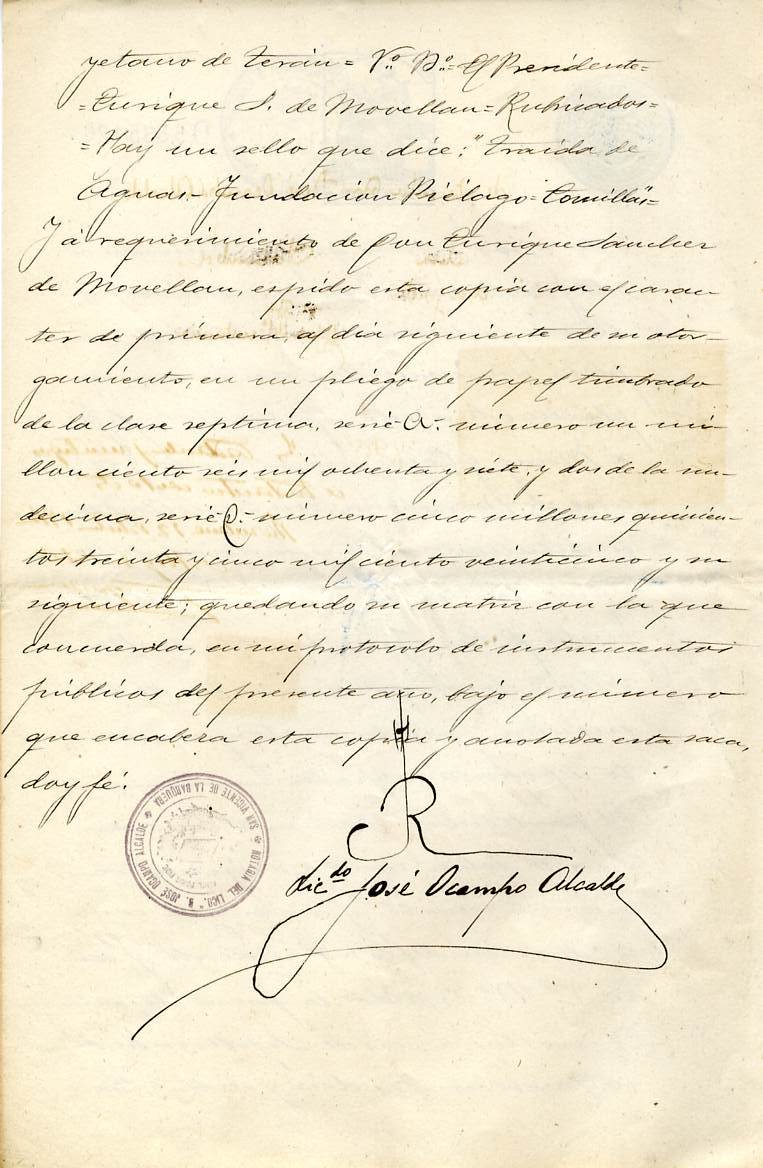 yetano de Terán = Vº Bº = El Presidente =
= Enrique S. de Movellan = Rubricados =
= Hay un sello que dice: "Traida de
Aguas - Fundacion Piélago - Comillas" =
Y á requerimiento de Don Enrique Sanchez
de Movellan, espido esta copia con el carac-
ter de primera, al dia siguiente de su otor-
gamiento, en un pliego de papel timbrado
de la clase septima, serie A. numero un mi-
llon ciento seis mil ochenta y siete, y dos de la un-
decima, serie C. numero cinco millones quinien-
tos treinta y cinco mil ciento veinticinco y su
siguiente; quedando su matriz con la que
concuerda, en mi protocolo de instrumentos
públicos del presente año, bajo el número
que encabeza esta copia y anotada esta saca,
doy fé.
NOTARIA DEL LICO. D. JOSÉ OCAMPO ALCALDE
SAN VICENTE DE LA BARQUERA
Licdo José Ocampo Alcalde